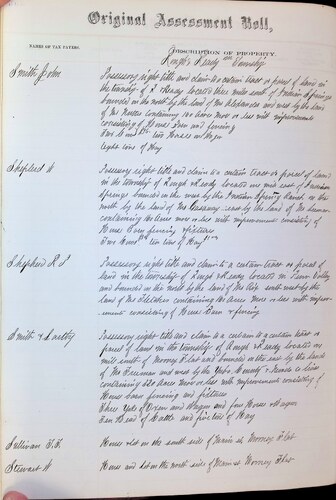 Original Assessment Roll,
NAMES OF TAX PAYERS.
DESCRIPTION OF PROPERTY.
Rough & Ready Township
Smith John
Possessory right title and claim to a certain tract or parcel of land in
the township of R Ready located three miles south of Indian Springs
bounded on the north by the land of and west by the land
of containing 160 Acres more or less with improvements
consisting of House Barn and fencing
two Horses
eight tons of Hay
Shepherd W
Possessory right title and claim to a certain tract or parcel of land
in the township of Rough & Ready located one mile east of Indian
Springs bounded on the west by the Indian Spring Ranch on the
north by the land of east by the land of
containing acres more or less with improvements consisting of
House Barn fencing & fixtures
ten tons of Hay
Shepherd R S
Possessory right title and claim to a certain tract or parcel of
land in the township of Rough & Ready located in Penn Valley
and bounded on the north by the land of south west by the
land of Fletcher containing Acres more or less with improv-
ement consisting of House Barn & fencing
Smith &
Possessory right title and claim to a certain tract or
parcel of land in the township of Rough & Ready located one
mile south of Mooney Flat and bounded on the east by the lands
of Freeman and west by the Yuba County
containing 320 Acres more or less with improvement consisting of
House barn fencing and fixtures
Three Yoke of Oxen and Wagon and four Horses & Wagon
Head of Cattle and five tons of Hay
Sullivan
House & lot on the south side of Main st Mooney Flat
Stewart W
House and lot on the north side of Main st Mooney Flat